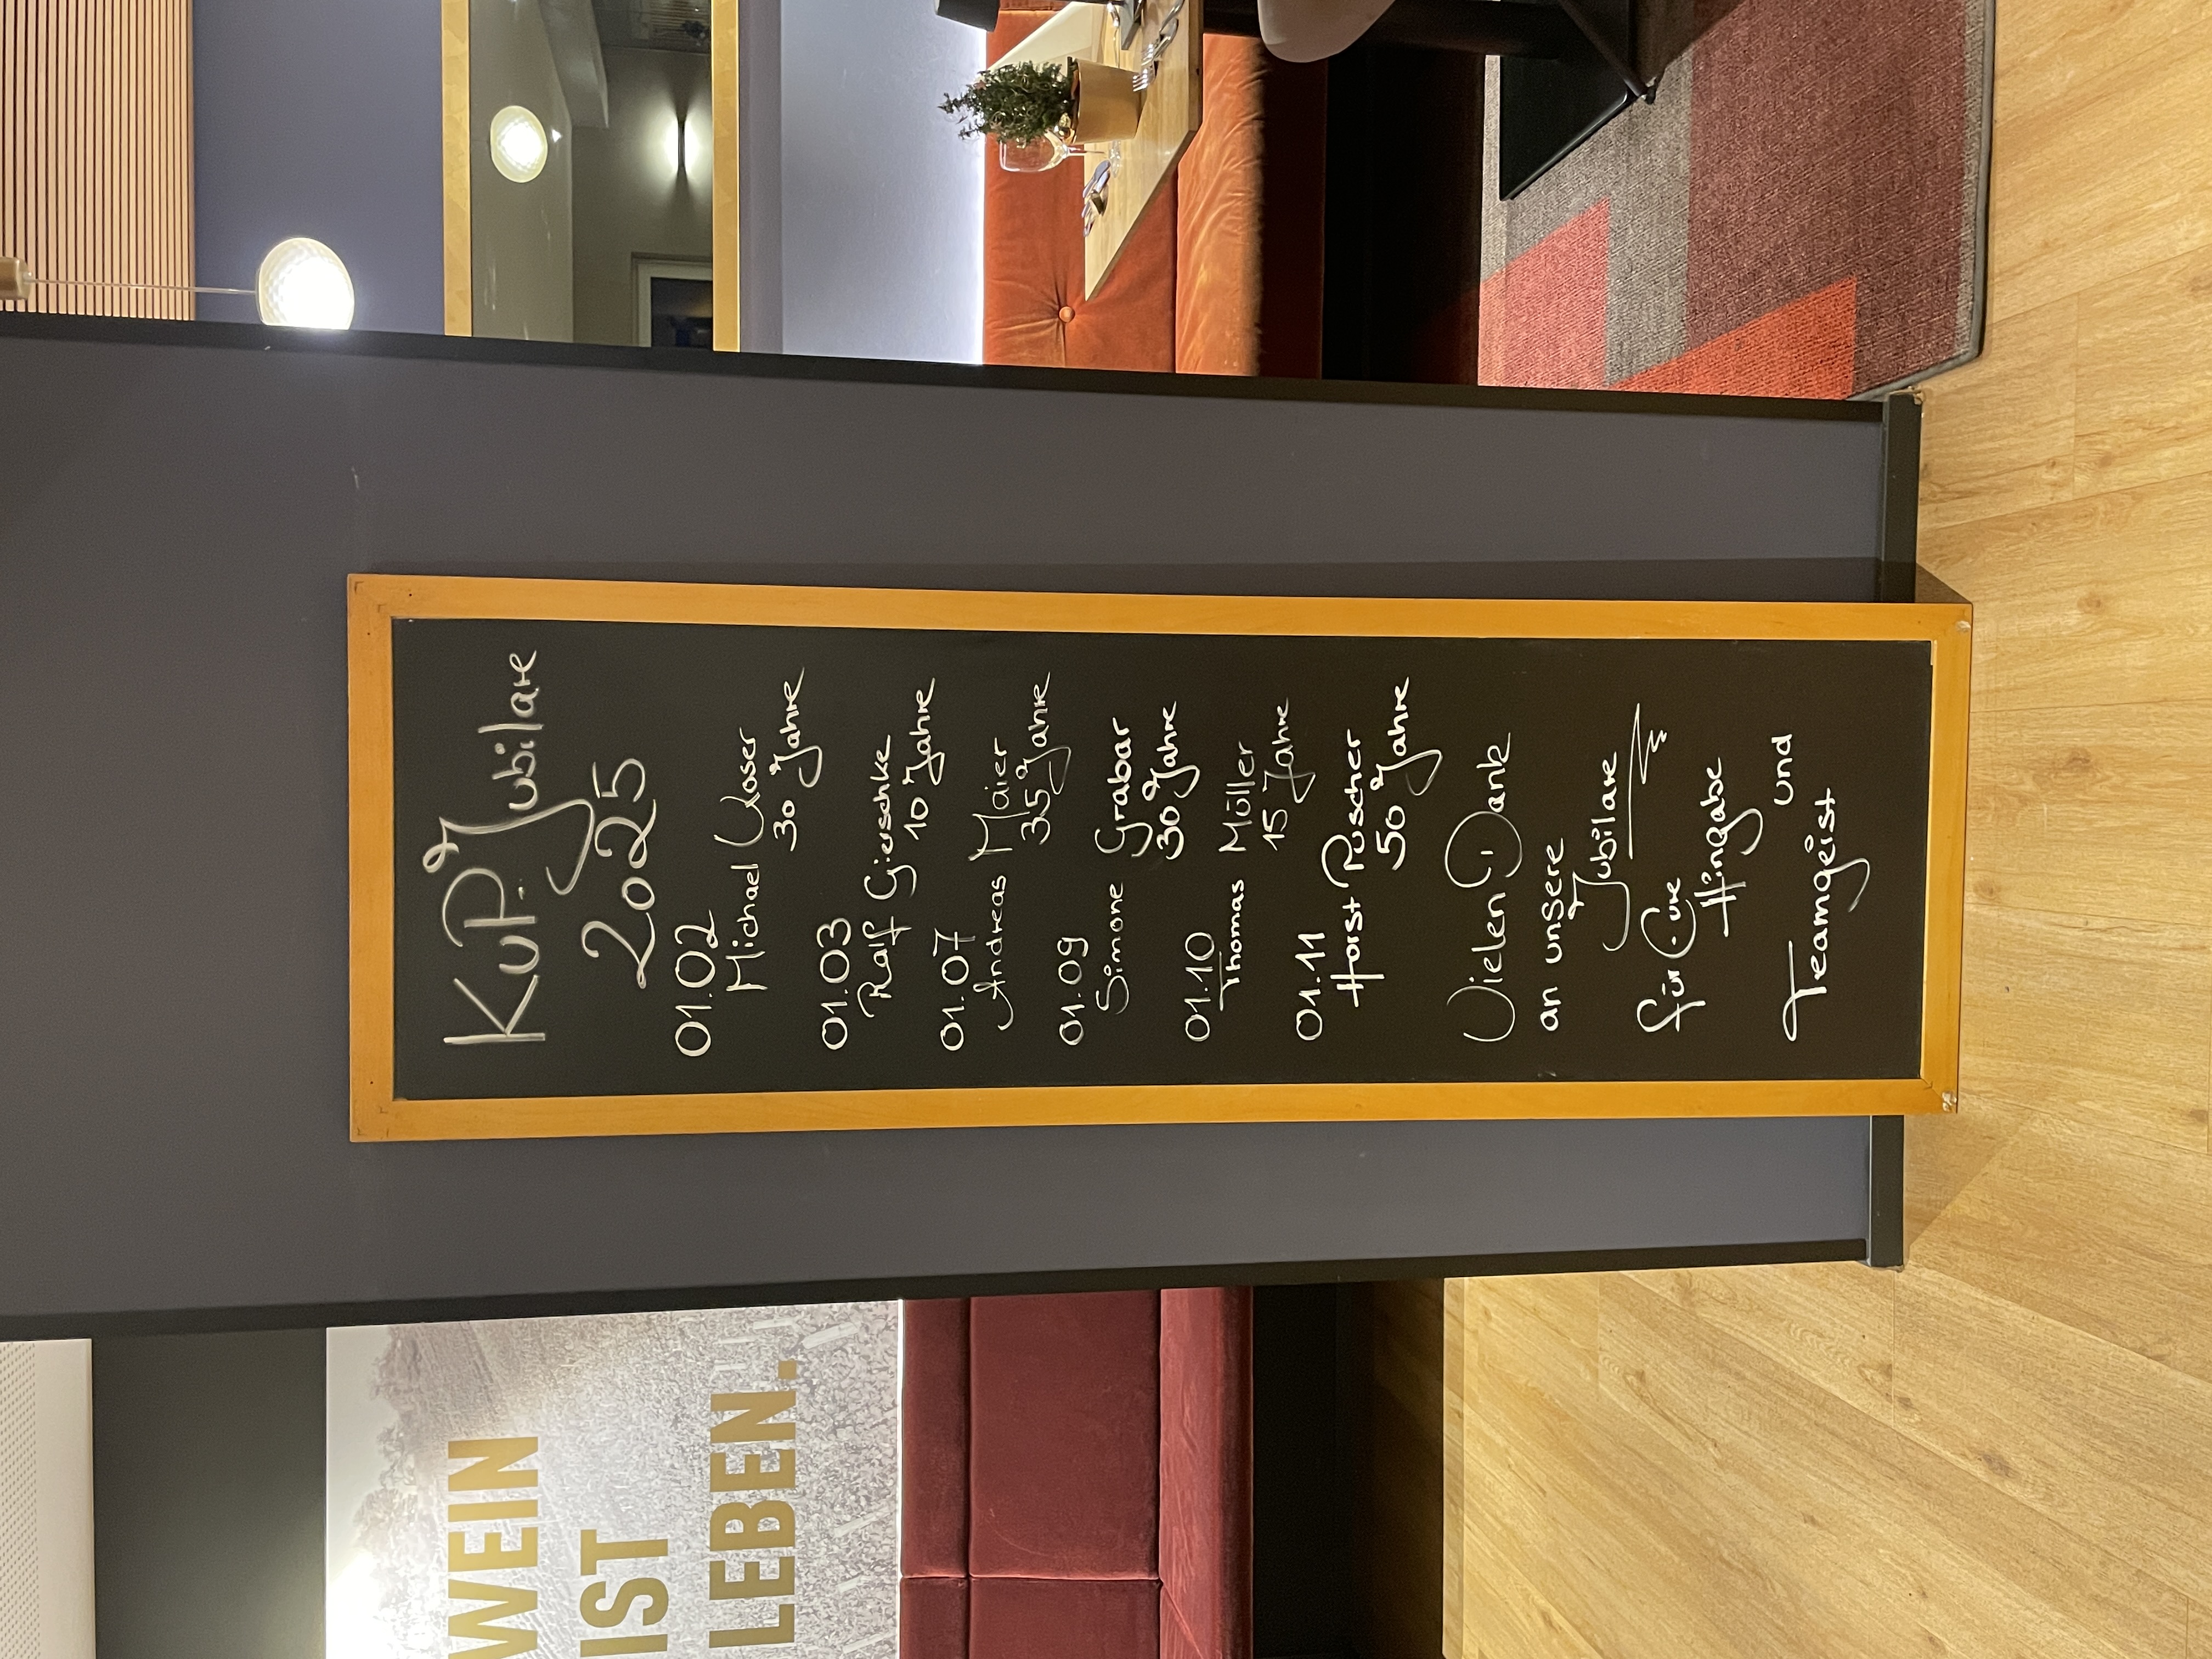 KuP. Jubilare
2025
01.02
Michael Moser
30 Jahre
01.03
Ralf Gierschke
10 Jahre
01.07
Andreas Maier
35 Jahre
01.09
Simone Grabar
30 Jahre
01.10
Thomas Müller
15 Jahre
01.11
Horst Puscher
50 Jahre
Vielen Dank
an unsere
Jubilare
für Eure
Hingabe
und
Teamgeist
WEIN
IST
LEBEN.